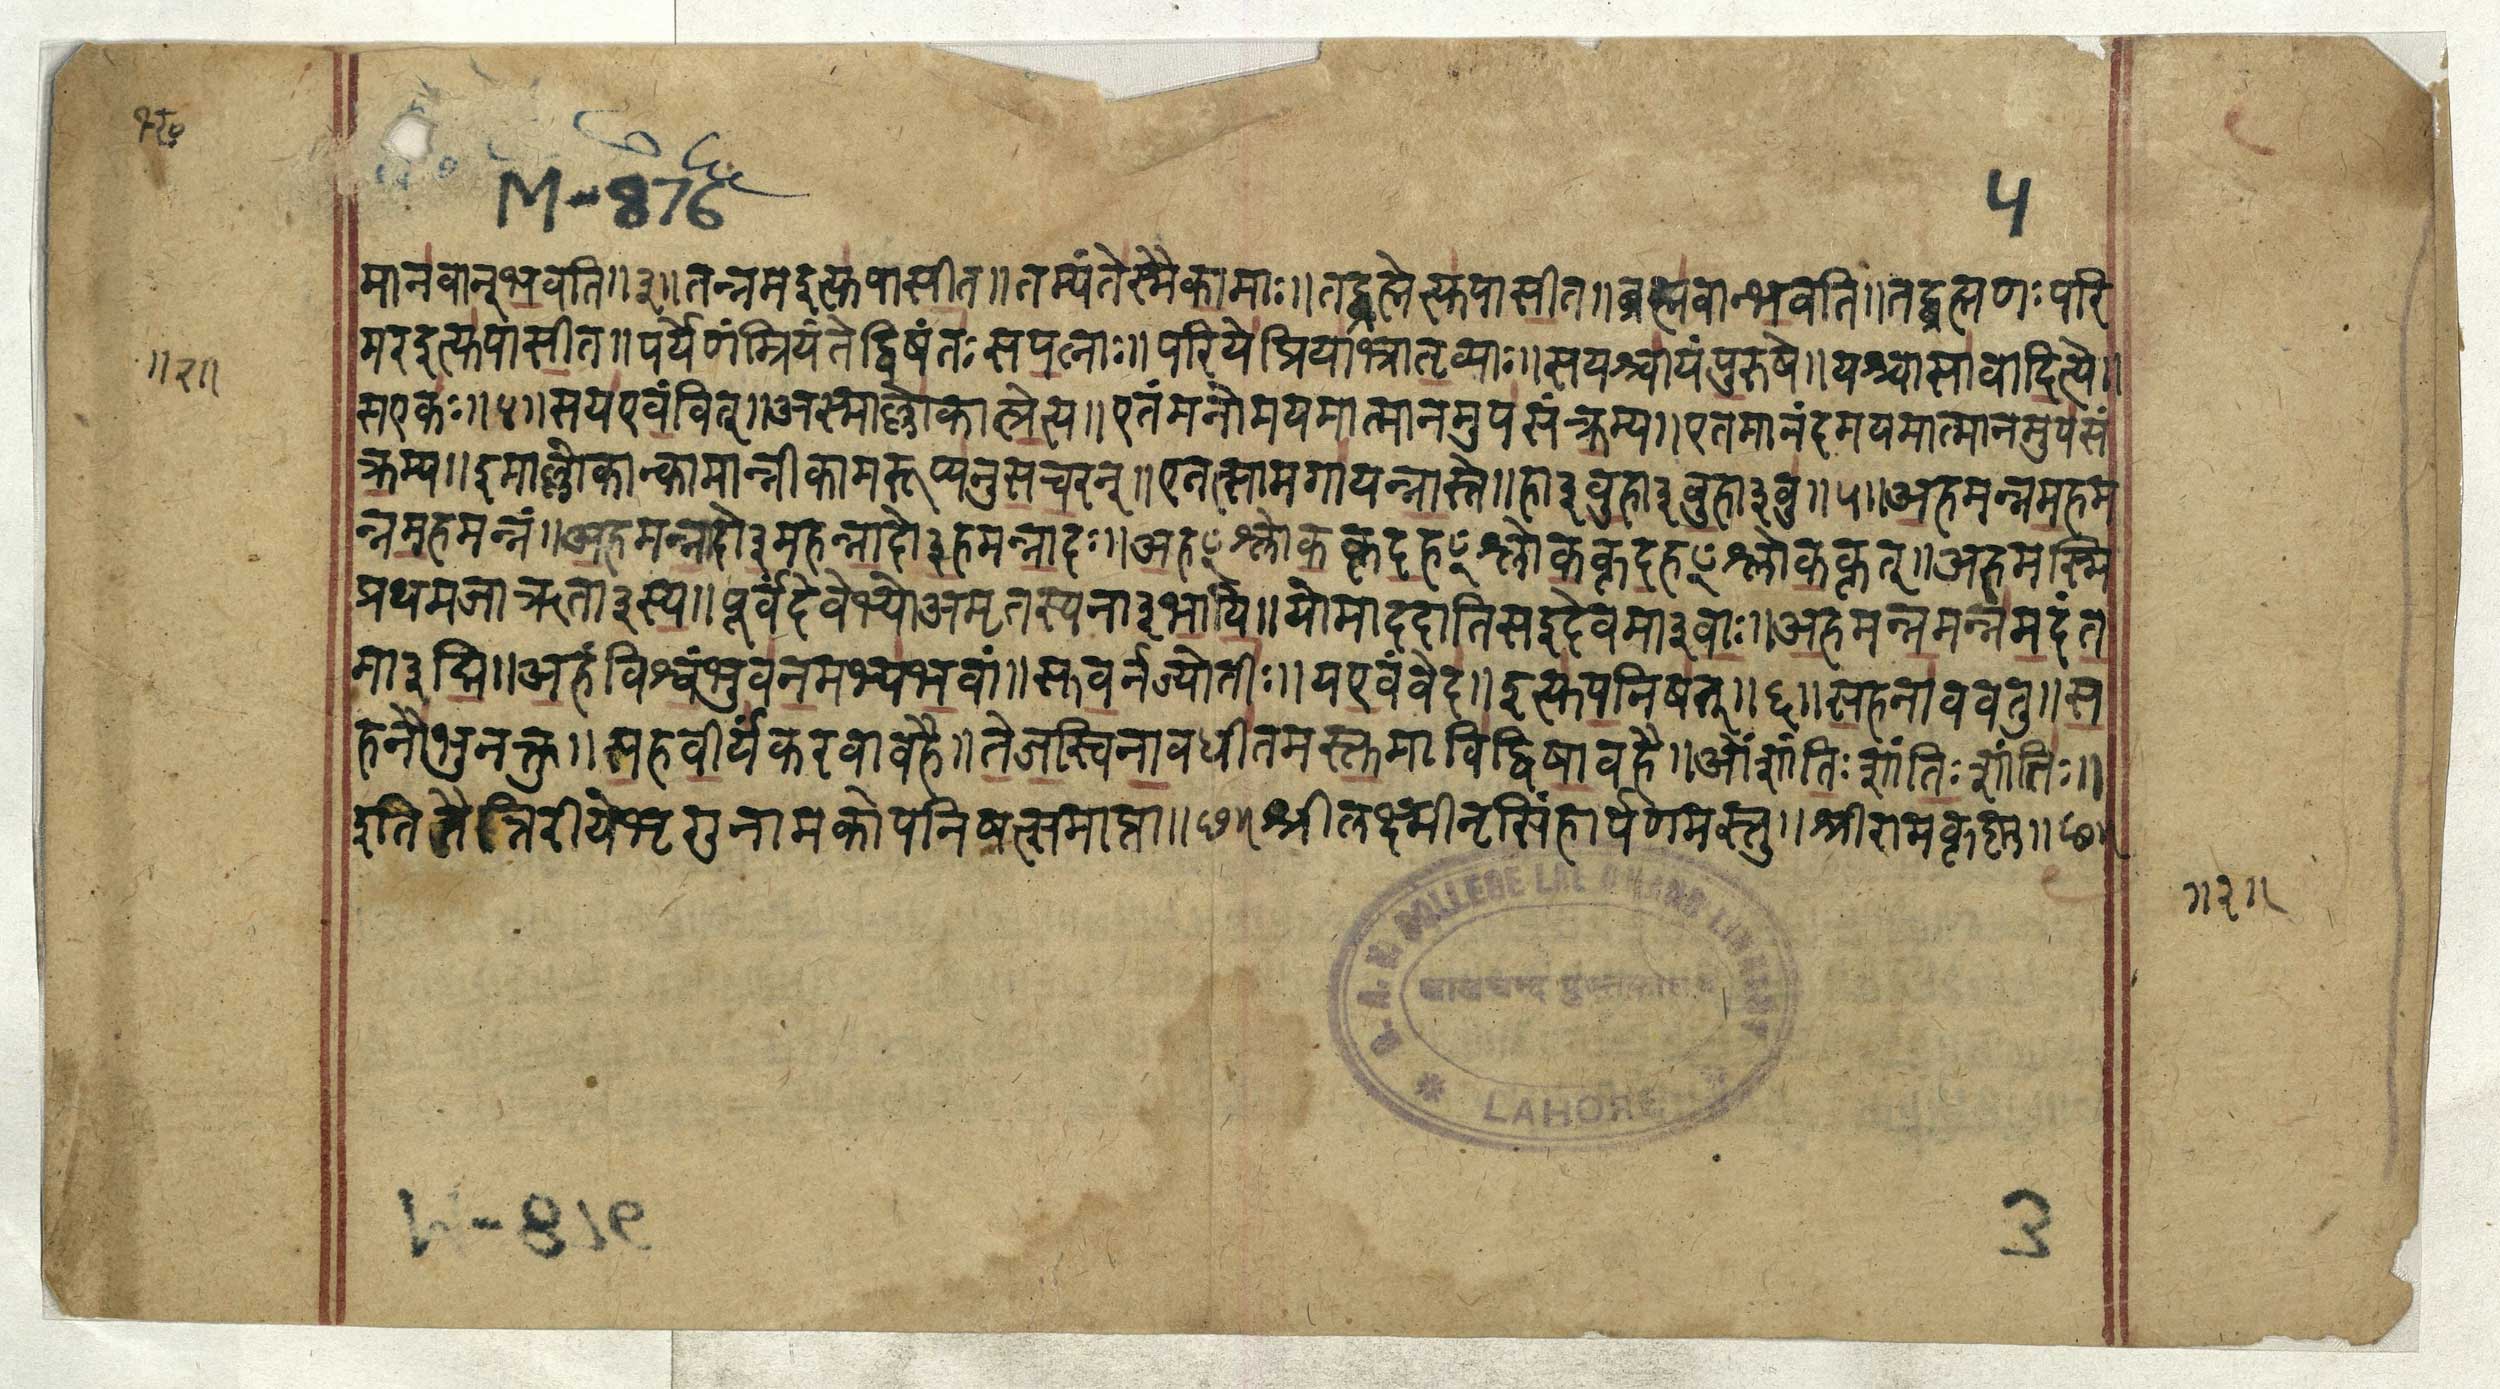 M-876
4
मानवान्भवति॥३॥तन्नमइत्युपासीत॥नम्यंतेस्मैकामाः॥तद्ब्रह्मेत्युपासीत॥ब्रह्मवान्भवति॥तद्ब्रह्मणःपरि
मरइत्युपासीत॥पर्येणंम्रियंतेद्विषंतःसपत्नाः॥परियेप्रियाभ्रातृव्याः॥सयश्चायंपुरुषे॥यश्चासावादित्ये॥
॥२॥
सएकः॥४॥सयएवंवित्॥अस्माल्लोकात्प्रेत्य॥एतंमनोमयमात्मानमुपसंक्रम्य॥एतमानंदमयमात्मानमुपसं
क्रम्य॥इमाल्लोकान्कामान्नीकामरूप्यनुसंचरन्॥एतत्सामगायन्नास्ते॥हा३वुहा३वुहा३वु॥५॥अहमन्नमहम
न्नमहमन्नं॥अहमन्नादो३महन्नादो३हमन्नादः॥अहꣳश्लोककृदहꣳश्लोककृदहꣳश्लोककृत्॥अहमस्मि
प्रथमजाऋता३स्य॥पूर्वंदेवेभ्योअमृतस्यना३भायि॥योमाददातिसइदेवमा३वाः॥अहमन्नमन्नमदंत
मा३द्मि॥अहंविश्वंभुवनमभ्यभवां॥सुवर्नज्योतीः॥यएवंवेद॥इत्युपनिषत्॥६॥सहनाववतु॥स
हनौभुनक्तु॥सहवीर्यंकरवावहै॥तेजस्विनावधीतमस्तुमाविद्विषावहै॥ओंशांतिःशांतिःशांतिः॥
इतितैत्तिरीयेभृगुनामकोपनिषत्समाप्ता॥छ॥श्रीलक्ष्मीनृसिंहार्पणमस्तु॥श्रीरामकृष्ण॥छ॥
॥२॥
D.A.V. COLLEGE LAL CHAND LIBRARY
लालचन्द पुस्तकालय
* LAHORE *
3